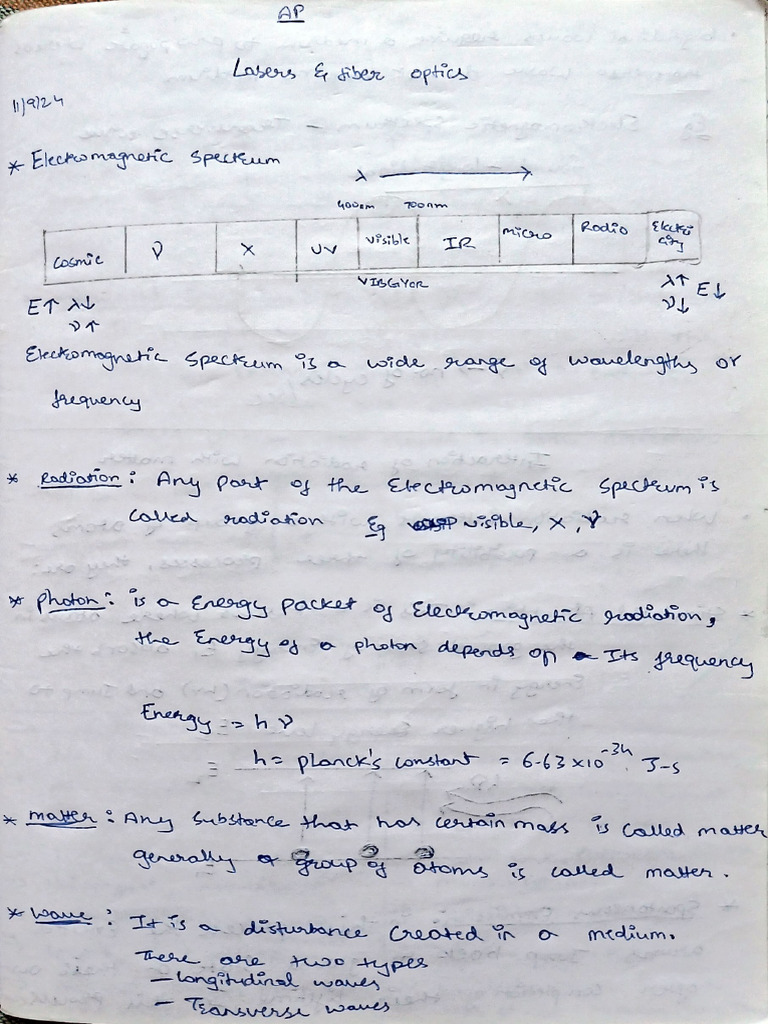 AP
Lasers & fiber optics
11/9/24
* Electromagnetic Spectrum
λ →
400nm 700nm
Cosmic γ X UV Visible IR Micro Radio Electricity
VIBGYOR
E↑ λ↓ λ↑ E↓
ν↑ ν↓
Electromagnetic Spectrum is a wide range of wavelengths or
frequency
* Radiation: Any part of the Electromagnetic Spectrum is
called radiation Eg visible, X, γ
* Photon: is a Energy packet of Electromagnetic radiation,
the Energy of a photon depends on Its frequency
Energy = h ν
h = planck's constant = 6.63 × 10⁻³⁴ J-s
* matter: Any substance that has certain mass is called matter
generally a group of atoms is called matter.
* Wave: It is a disturbance created in a medium.
There are two types
– longitudinal waves
– Transverse waves